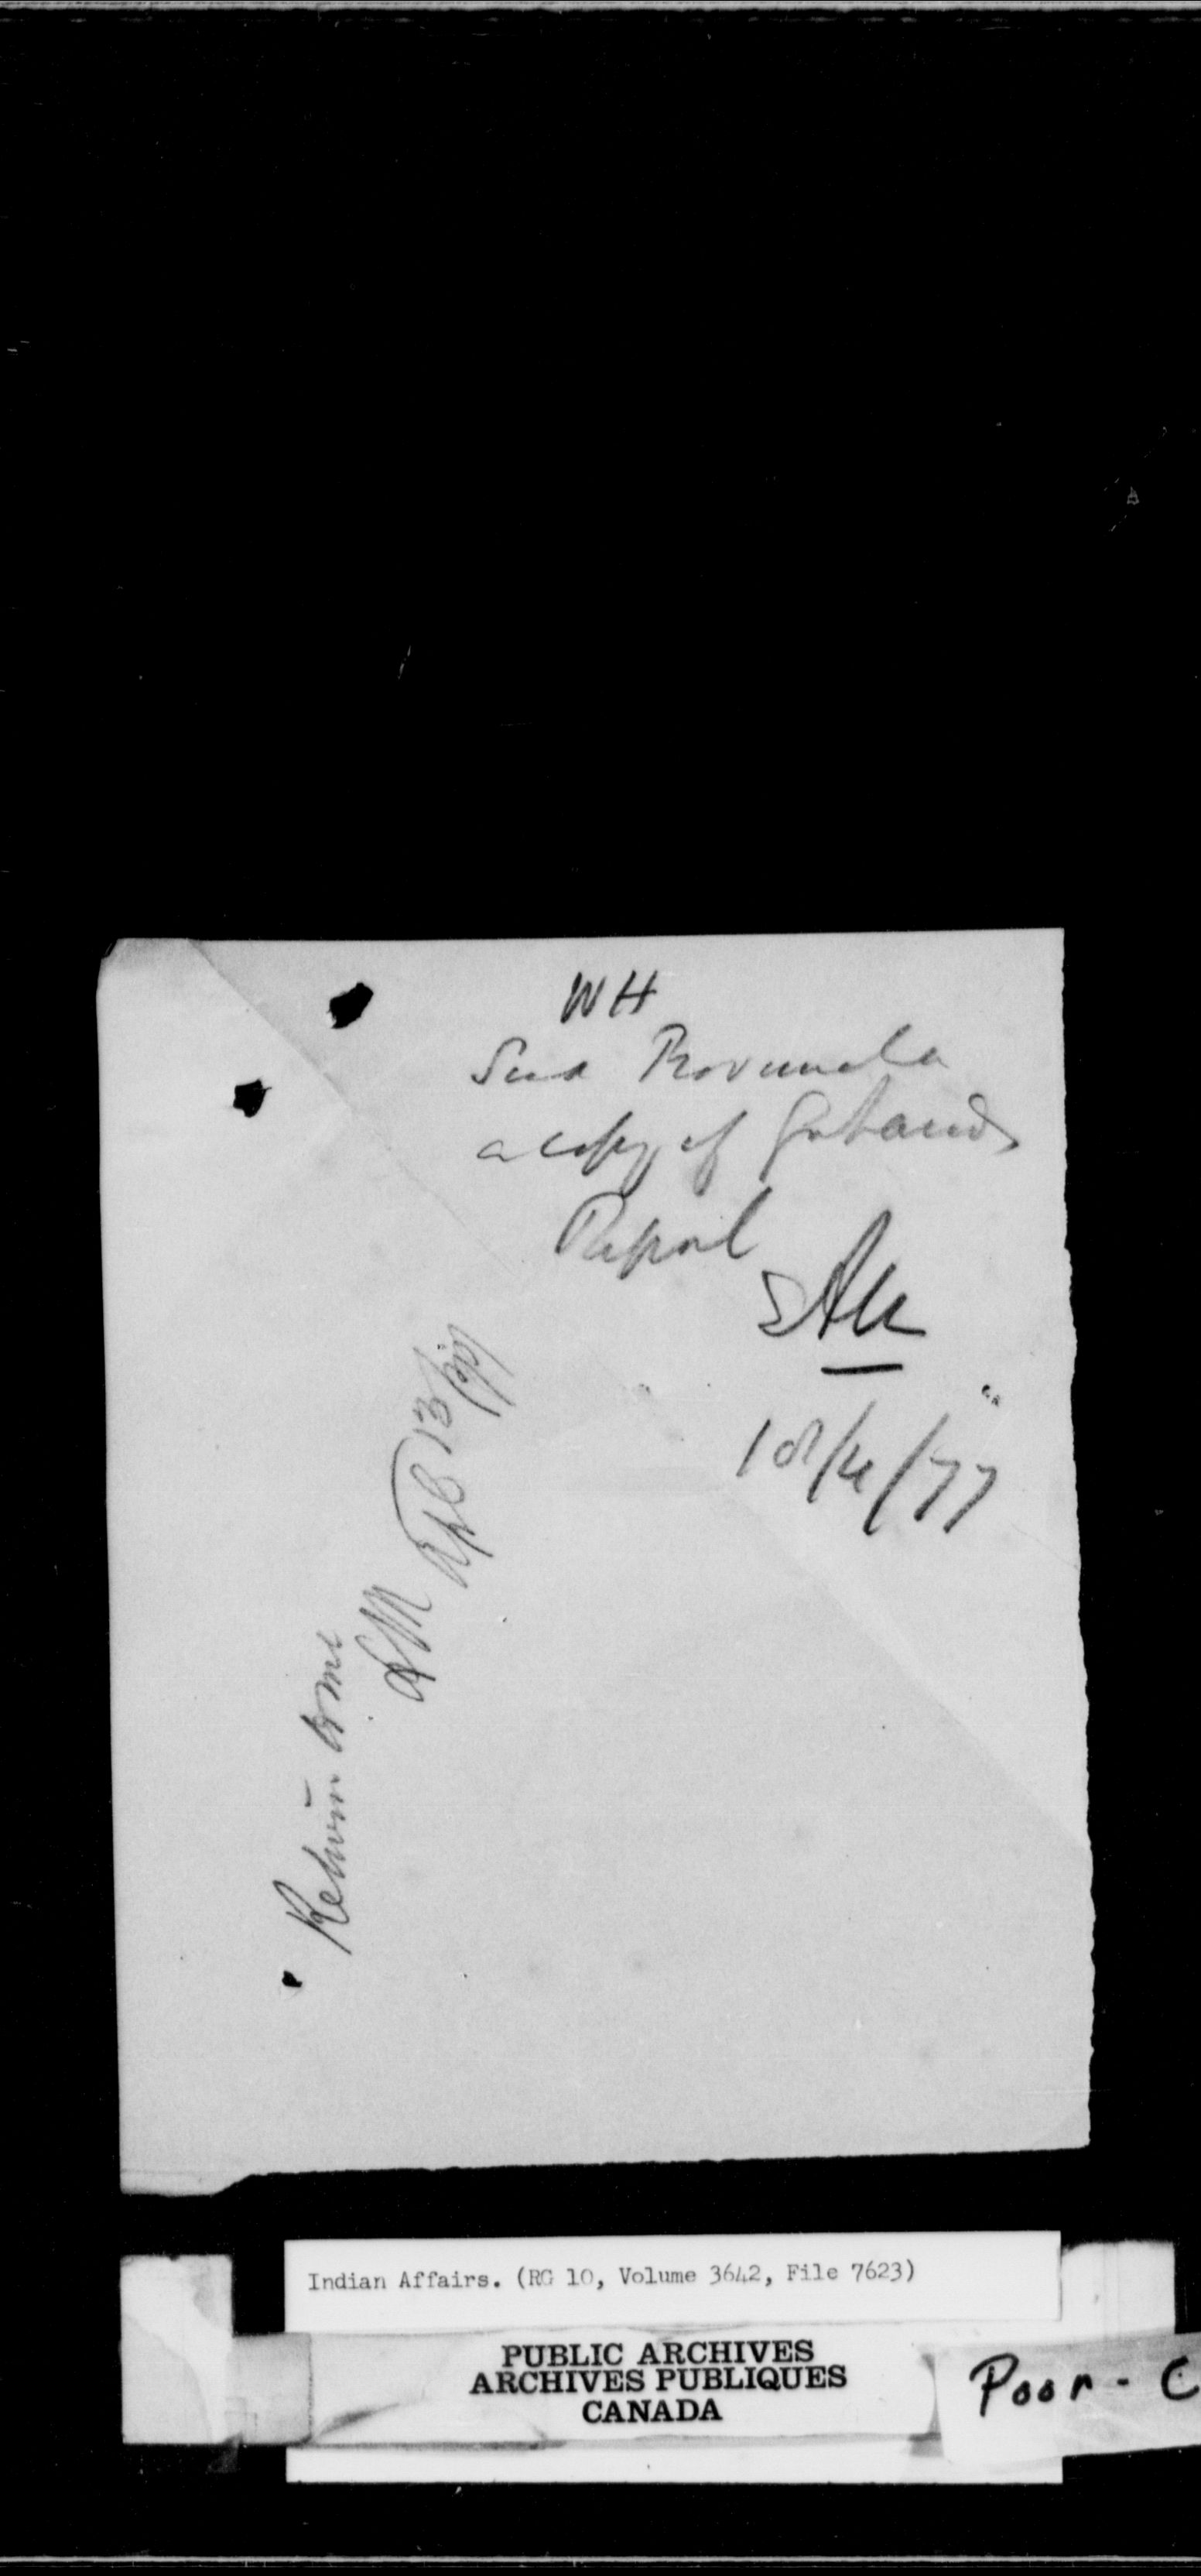 WH
Send Provencher
a copy of Grahams
Report
18/4/77
Return to me
Apl 13/77
Indian Affairs. (RG 10, Volume 3642, File 7623)
PUBLIC ARCHIVES
ARCHIVES PUBLIQUES
CANADA
Poor - C